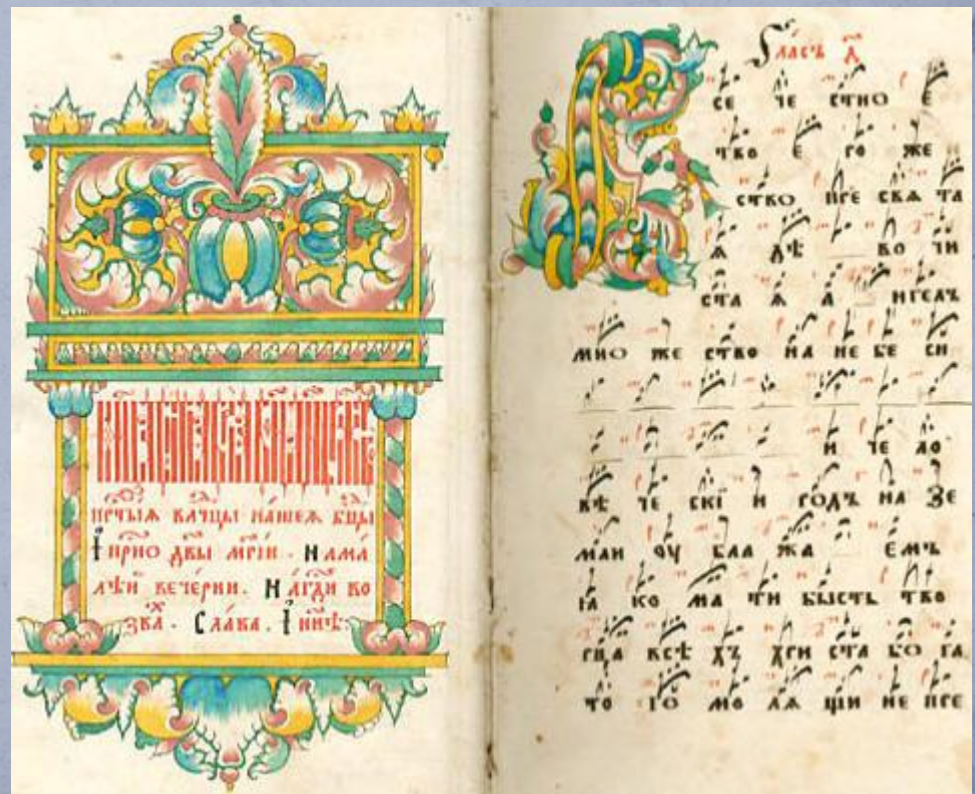 прⷭ҇чтыѧ влⷣчцы на́шеѧ бцⷣы
І҆ прⷭ҇но дв҃ы мр҃і́и . На ма́
лѣй вече́рни . На гдⷭ҇и во
звⷯа . Сла́ва . І҆ ны́нѣ:
Гла́съ а҃
В се че стно е
тво е ро же
ство пре свѧ та
ѧ дѣ во чи
ста ѧ а нгелъ
мно же ство на не бе си
и че ло
вѣ че скі и родъ на зе
мли оу бла жа емъ
ꙗ ко ма ти бысть тво
рца всѣ хъ хри ста бо га
то го мо лѧ щи не пре